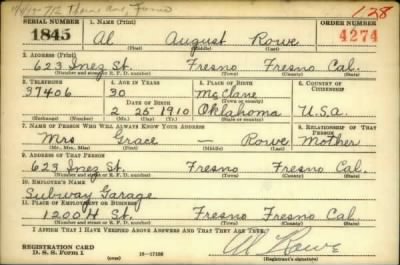 128
SERIAL NUMBER 1. NAME (Print) ORDER NUMBER
1845 Al August Rowe 4274
(First) (Middle) (Last)
2. ADDRESS (Print)
623 Inez St. Fresno Fresno Cal.
(Number and street or R. F. D. number) (Town) (County) (State)
3. TELEPHONE 4. AGE IN YEARS 5. PLACE OF BIRTH 6. COUNTRY OF CITIZENSHIP
37406 30 McClane
DATE OF BIRTH (Town or county)
2 25 1910 Oklahoma U.S.a.
(Exchange) (Number) (Mo.) (Day) (Yr.) (State or country)
7. NAME OF PERSON WHO WILL ALWAYS KNOW YOUR ADDRESS 8. RELATIONSHIP OF THAT PERSON
Mrs Grace — Rowe Mother
(Mr., Mrs., Miss) (First) (Middle) (Last)
9. ADDRESS OF THAT PERSON
623 Inez St. Fresno Fresno Cal.
(Number and street or R. F. D. number) (Town) (County) (State)
10. EMPLOYER'S NAME
Subway Garage
11. PLACE OF EMPLOYMENT OR BUSINESS
1200 H St. Fresno Fresno Cal.
(Number and street or R. F. D. number) (Town) (County) (State)
I AFFIRM THAT I HAVE VERIFIED ABOVE ANSWERS AND THAT THEY ARE TRUE.
REGISTRATION CARD
D. S. S. Form 1 (over) 16—17105 Al Rowe
(Registrant's signature)